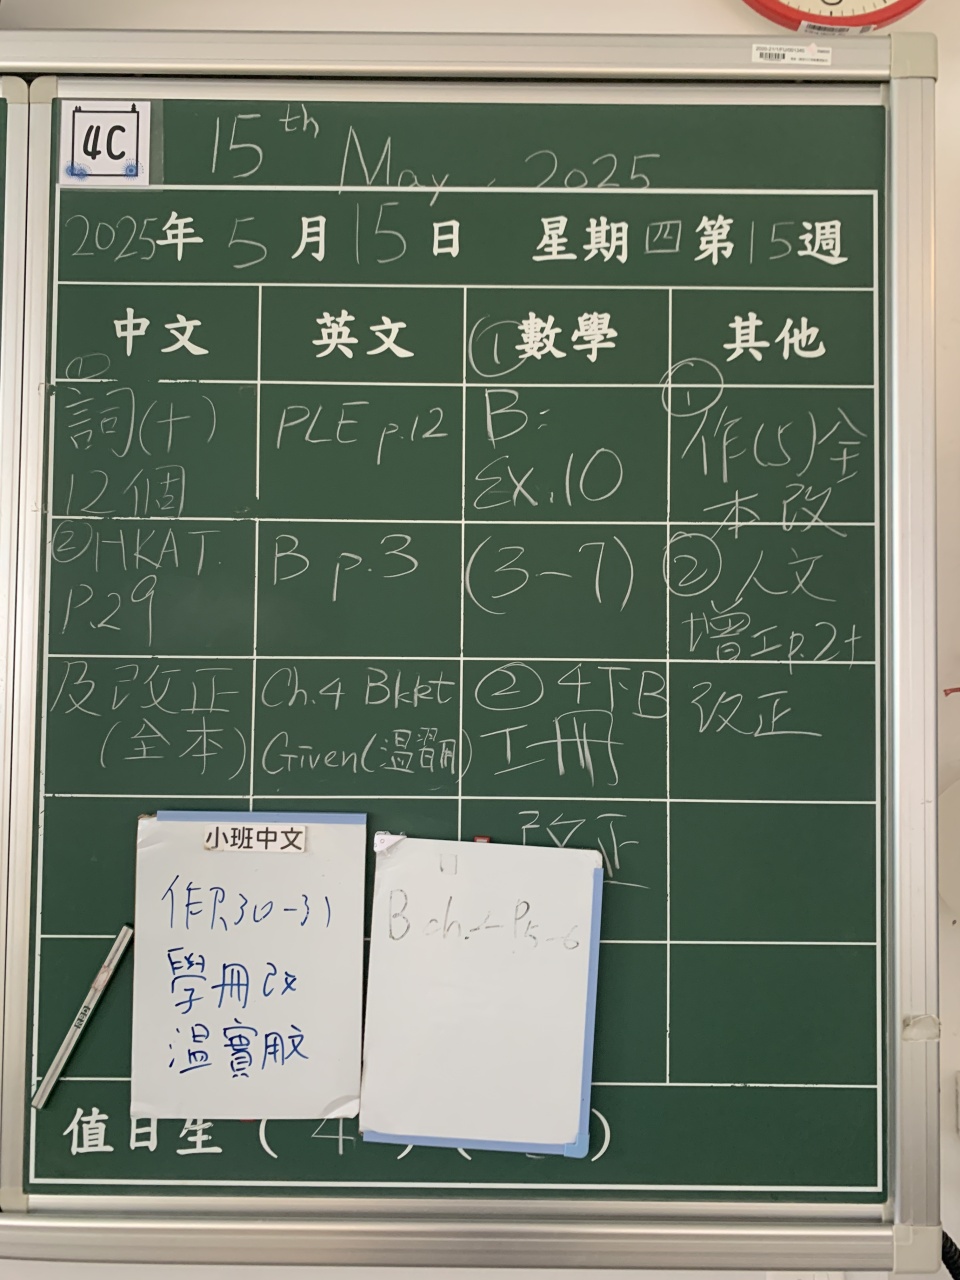 4C
15th May, 2025
2025年 5月 15日 星期四 第15週
中文
①
詞(十)
12個
②HKAT.
P.29
及改正
(全本)
英文
PLE p.12
B p.3
Ch.4 Bkkt
Given(溫習)
數學
①
B:
Ex.10
(3-7)
② 4下B
工冊
改正
其他
①
作(5)全
本改
② 人文
增工p.2+
改正
小班中文
作P.30-31
學冊改
溫實用文
B ch.
值日生 ( 4 ) ( )